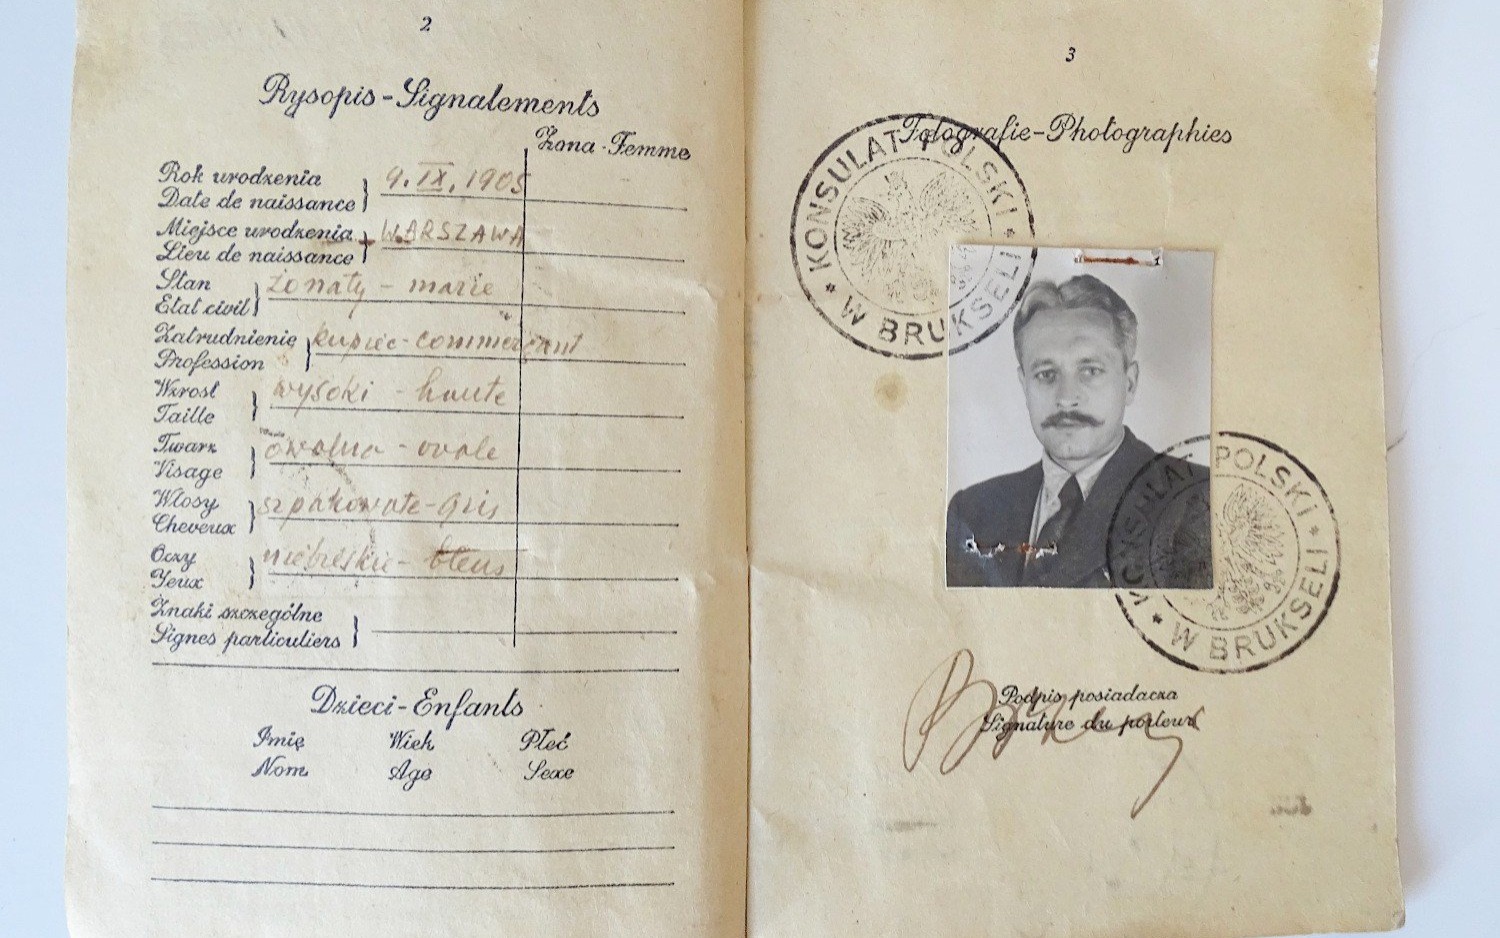 2
Rysopis - Signalements
Żona - Femme
Rok urodzenia
Date de naissance
9. IX. 1905
Miejsce urodzenia
Lieu de naissance
WARSZAWA
Stan
Etat civil
żonaty - marie
Zatrudnienie
Profession
kupiec - commerçant
Wzrost
Taille
wysoki - haute
Twarz
Visage
owalna - ovale
Włosy
Cheveux
szpakowate - gris
Oczy
Yeux
niebieskie - bleus
Znaki szczególne
Signes particuliers
Dzieci - Enfants
Imię Wiek Płeć
Nom Age Sexe
3
Fotografie - Photographies
KONSULAT POLSKI
* W BRUKSELI *
KONSULAT POLSKI
* W BRUKSELI *
Podpis posiadacza
Signature du porteur